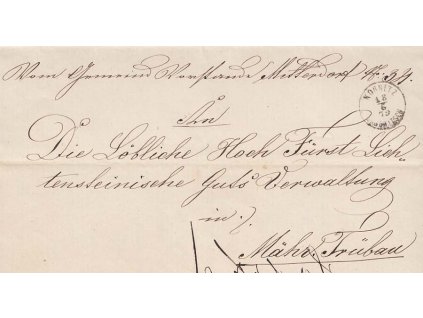 Vom Gemeind Vorstande Mitterdorf N: 34.
KORNITZ
18
6
79
An
Die Löbliche Hoch Fürst Lich-
tensteinische Guts Verwaltung
in ./.
Mähr. Trübau